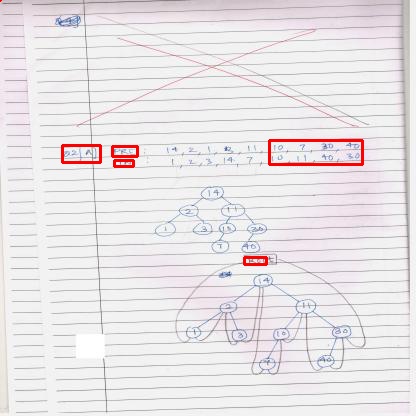 Q2[A] PRE : 14, 2, 1, 3, 11, 10, 7, 30, 40
IN : 1, 2, 3, 14, 7, 10, 11, 40, 30
14
2 11
1 3 10 30
7 40
14
2 11
1 3 10 30
7 40